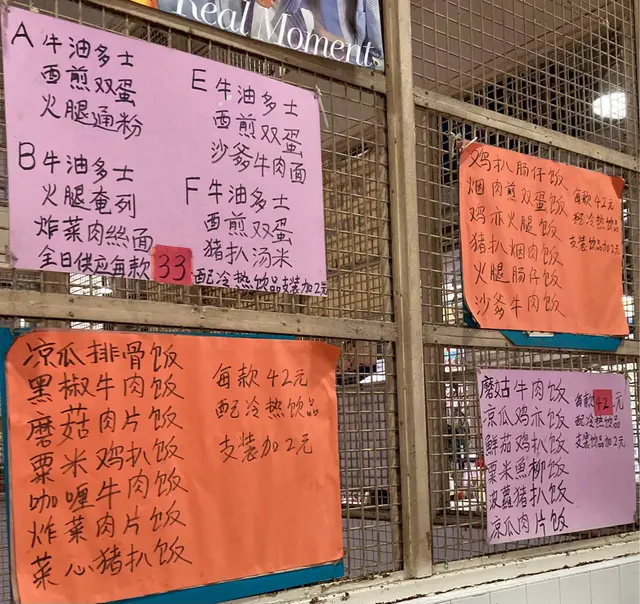 Real Moments
A 牛油多士
西煎双蛋
火腿通粉
B 牛油多士
火腿奄列
炸菜肉丝面
全日供应每款 33 配冷热饮品支装加2元
E 牛油多士
西煎双蛋
沙爹牛肉面
F 牛油多士
西煎双蛋
猪扒汤米
鸡扒肠仔饭
烟肉煎双蛋饭
鸡亦火腿饭
猪扒烟肉饭
火腿肠仔饭
沙爹牛肉饭
每款42元
配冷热饮品
支装饮品加2元
凉瓜排骨饭
黑椒牛肉饭
蘑菇肉片饭
粟米鸡扒饭
咖喱牛肉饭
炸菜肉片饭
菜心猪扒饭
每款42元
配冷热饮品
支装加2元
蘑菇牛肉饭
凉瓜鸡亦饭
鲜茄鸡扒饭
粟米魚柳饭
菠蘿猪扒饭
凉瓜肉片饭
每款42元
配冷热饮品
支装饮品加2元